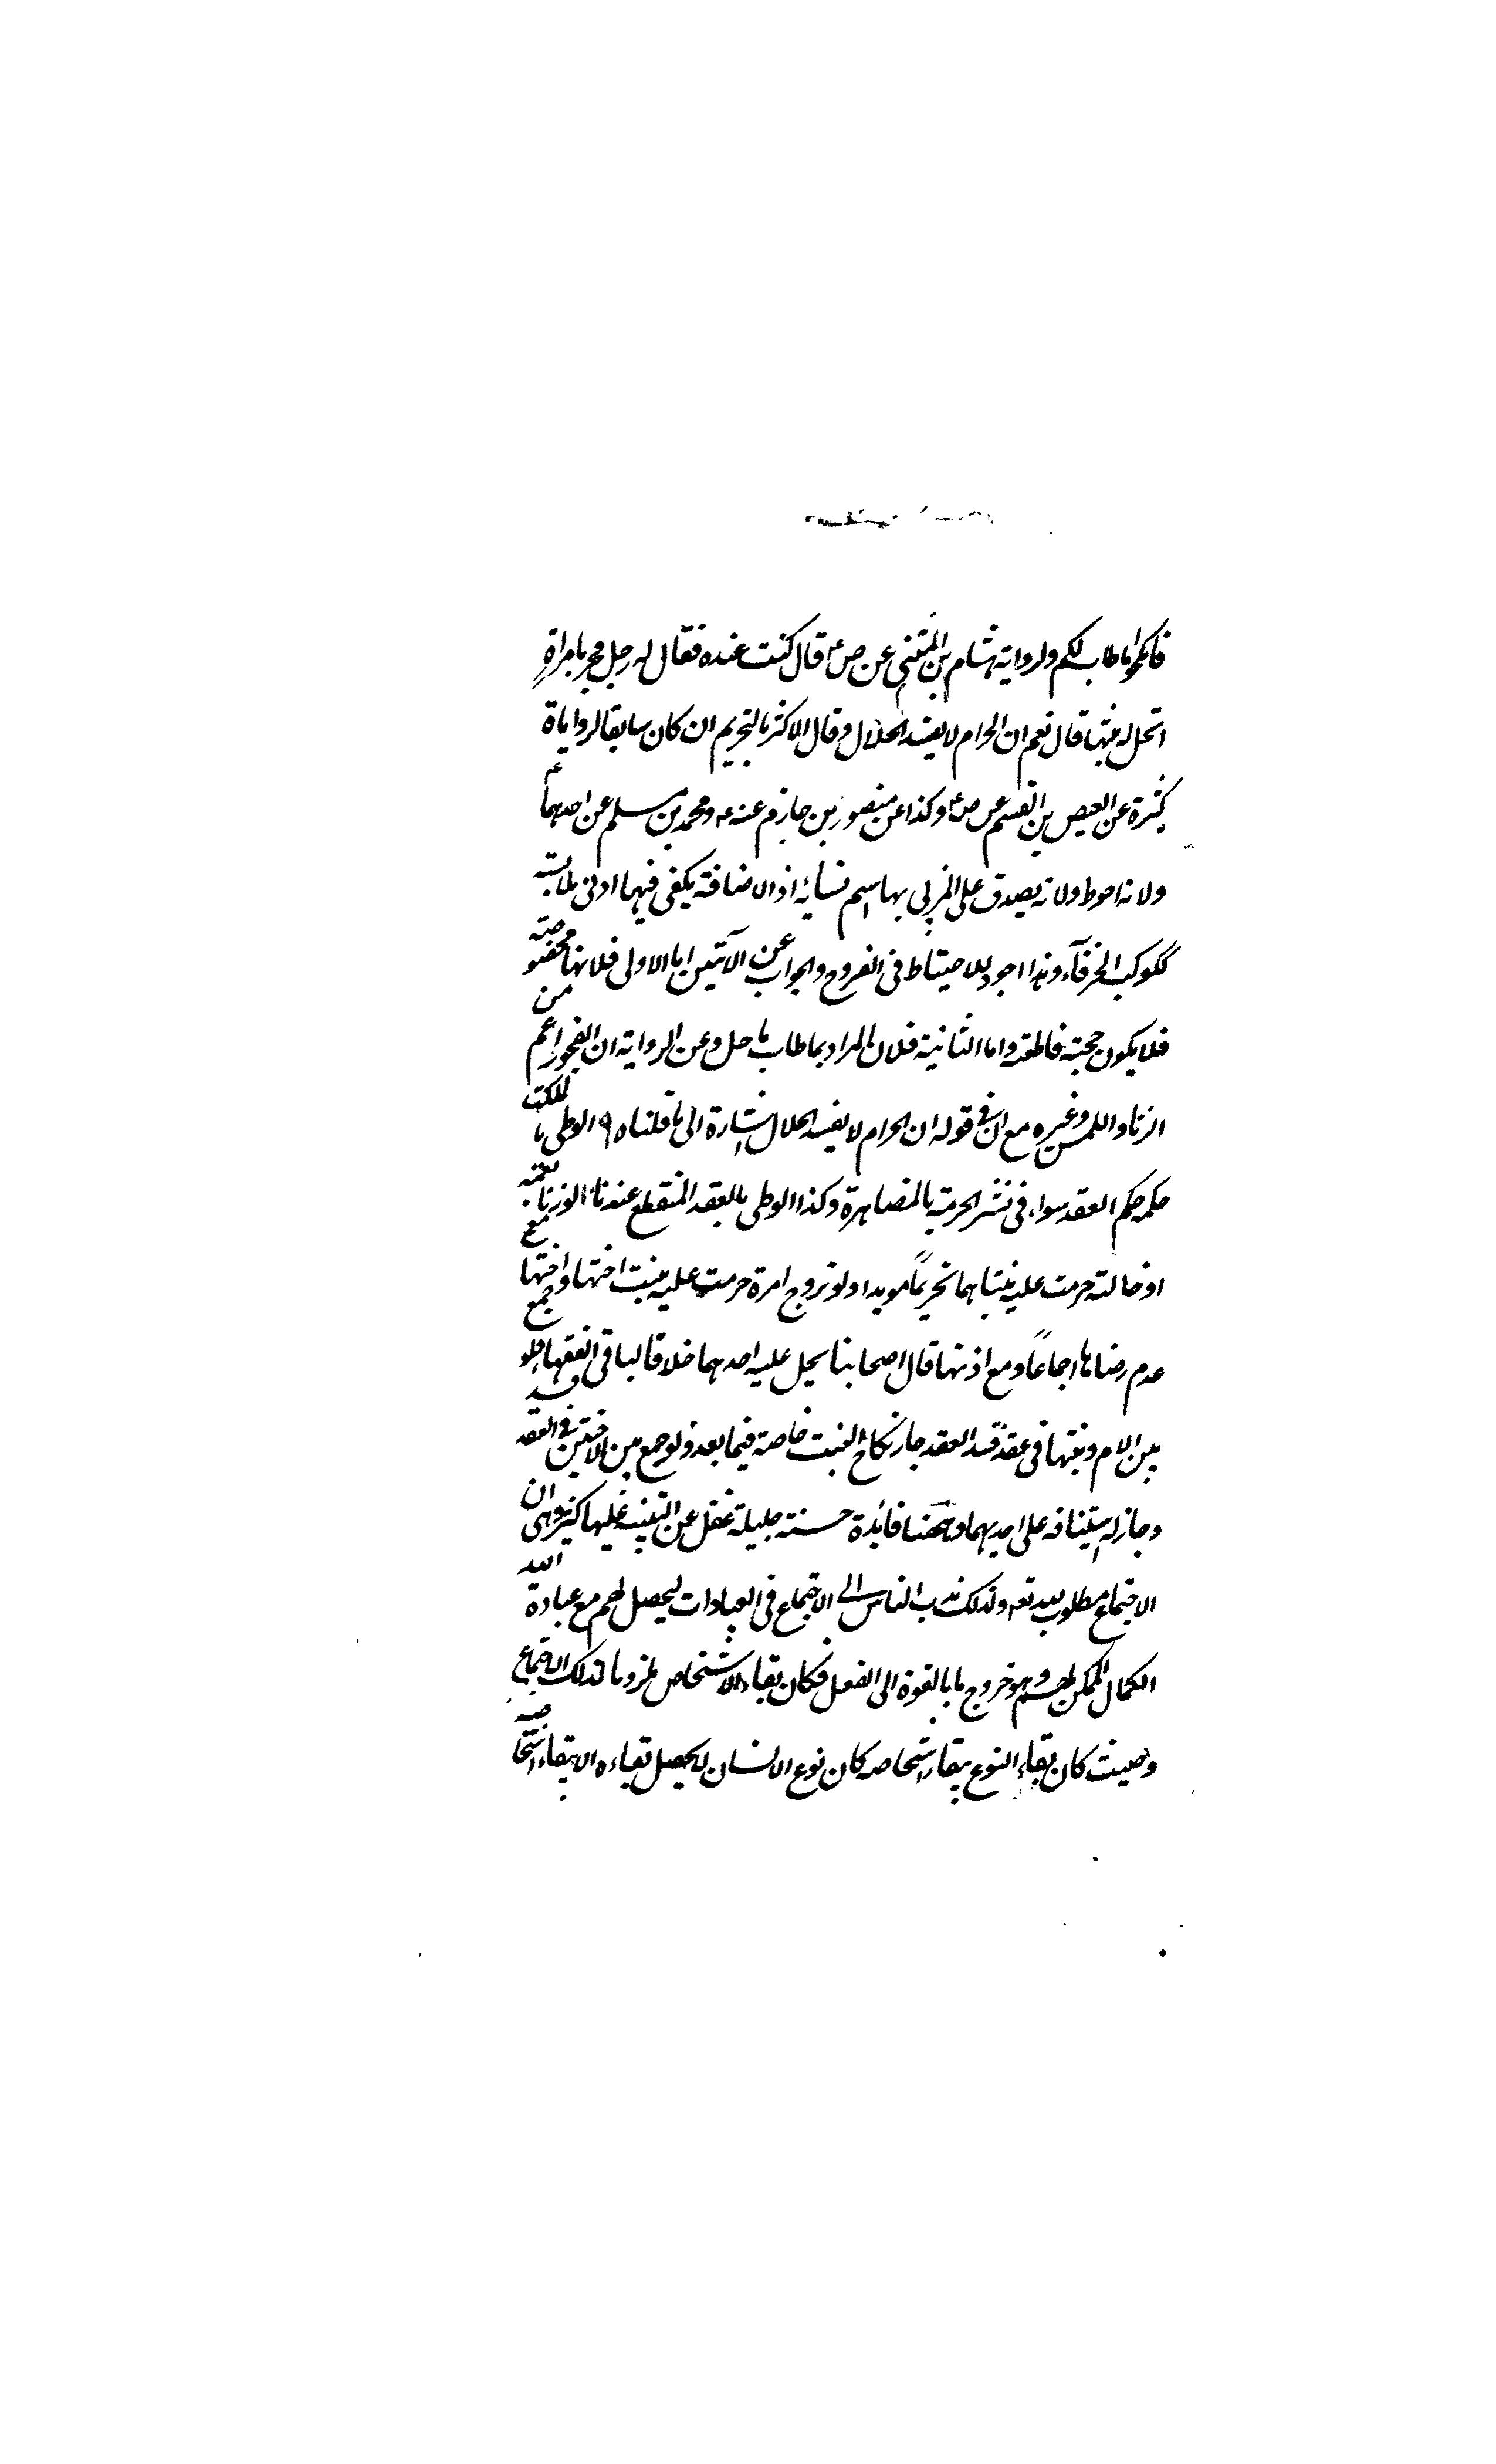 فانكحوا ما طاب لكم ولرواية هشام بن المثنى عن ص ع قال كنت عنده فقال له رجل فجر بامراةٍ
اتحل له بنتها قال نعم ان الحرام لا يفسد الحلال وقال الاكثر بالتحريم ان كان سابقا لروايات
كثيرة عن العيص بن القسم عن ص ع وكذا عن منصور بن حازم عنه ع ومحمد بن مسلم عن احدهما ع
ولانه احوط ولانه يصدق على المزني بها اسم نسائه اذ الاضافة يكفى فيها ادنى ملابسته
ككوكب الخرقآء وهذا اجود للاحتياط فى الفروج والجواب عن الآيتين اما الاولى فلانها مخصوصته
فلا يكون حجته قاطعه واما الثانية فلان المراد بما طاب ما حل وعن الرواية ان الفجور اعم من
الزنا واللمس وغيره مع ان فى قوله ان الحرام لا يفسد الحلال اشارة الى ما قلناه ٩ الوطى بالملك
حكمه حكم العقد سواء فى نشر الحرمة بالمصاهرة وكذا الوطى بالعقد المنقطع عندنا ا لو زنا بعمته
او خالته حرمت عليه بنتاهما تحريمًا مويدا ولو تزوج امرة حرمت عليه بنت اختها واختها مع
عدم رضاها اجماعًا ومع اذنها قال اصحابنا يحل عليه احدهما خلافا لباقى الفقهاء ولو جمع
بين الام وبنتها فى عقد فسد العقد جاز نكاح البنت خاصة فيما بعد ولو جمع بين الاختين فى العقد فسد
وجاز له استينافه على احديهما وههنا فائدة حسنته جليلة غفل عن التنبيه عليها كثير وهى ان
الاجتماع مطلوب لله تعه ولذلك ندب الناس الى الاجتماع فى العبادات ليحصل لهم مع عبادة الله
الكمال الممكن لهم وهو خروج ما بالقوة الى الفعل فكان بقاء الاشخاص ملزوما لذلك الاجتماع
وحيث كان بقاء النوع ببقاء اشخاصه كان نوع الانسان لا يحصل بقاءه الا ببقاء اشخاصه